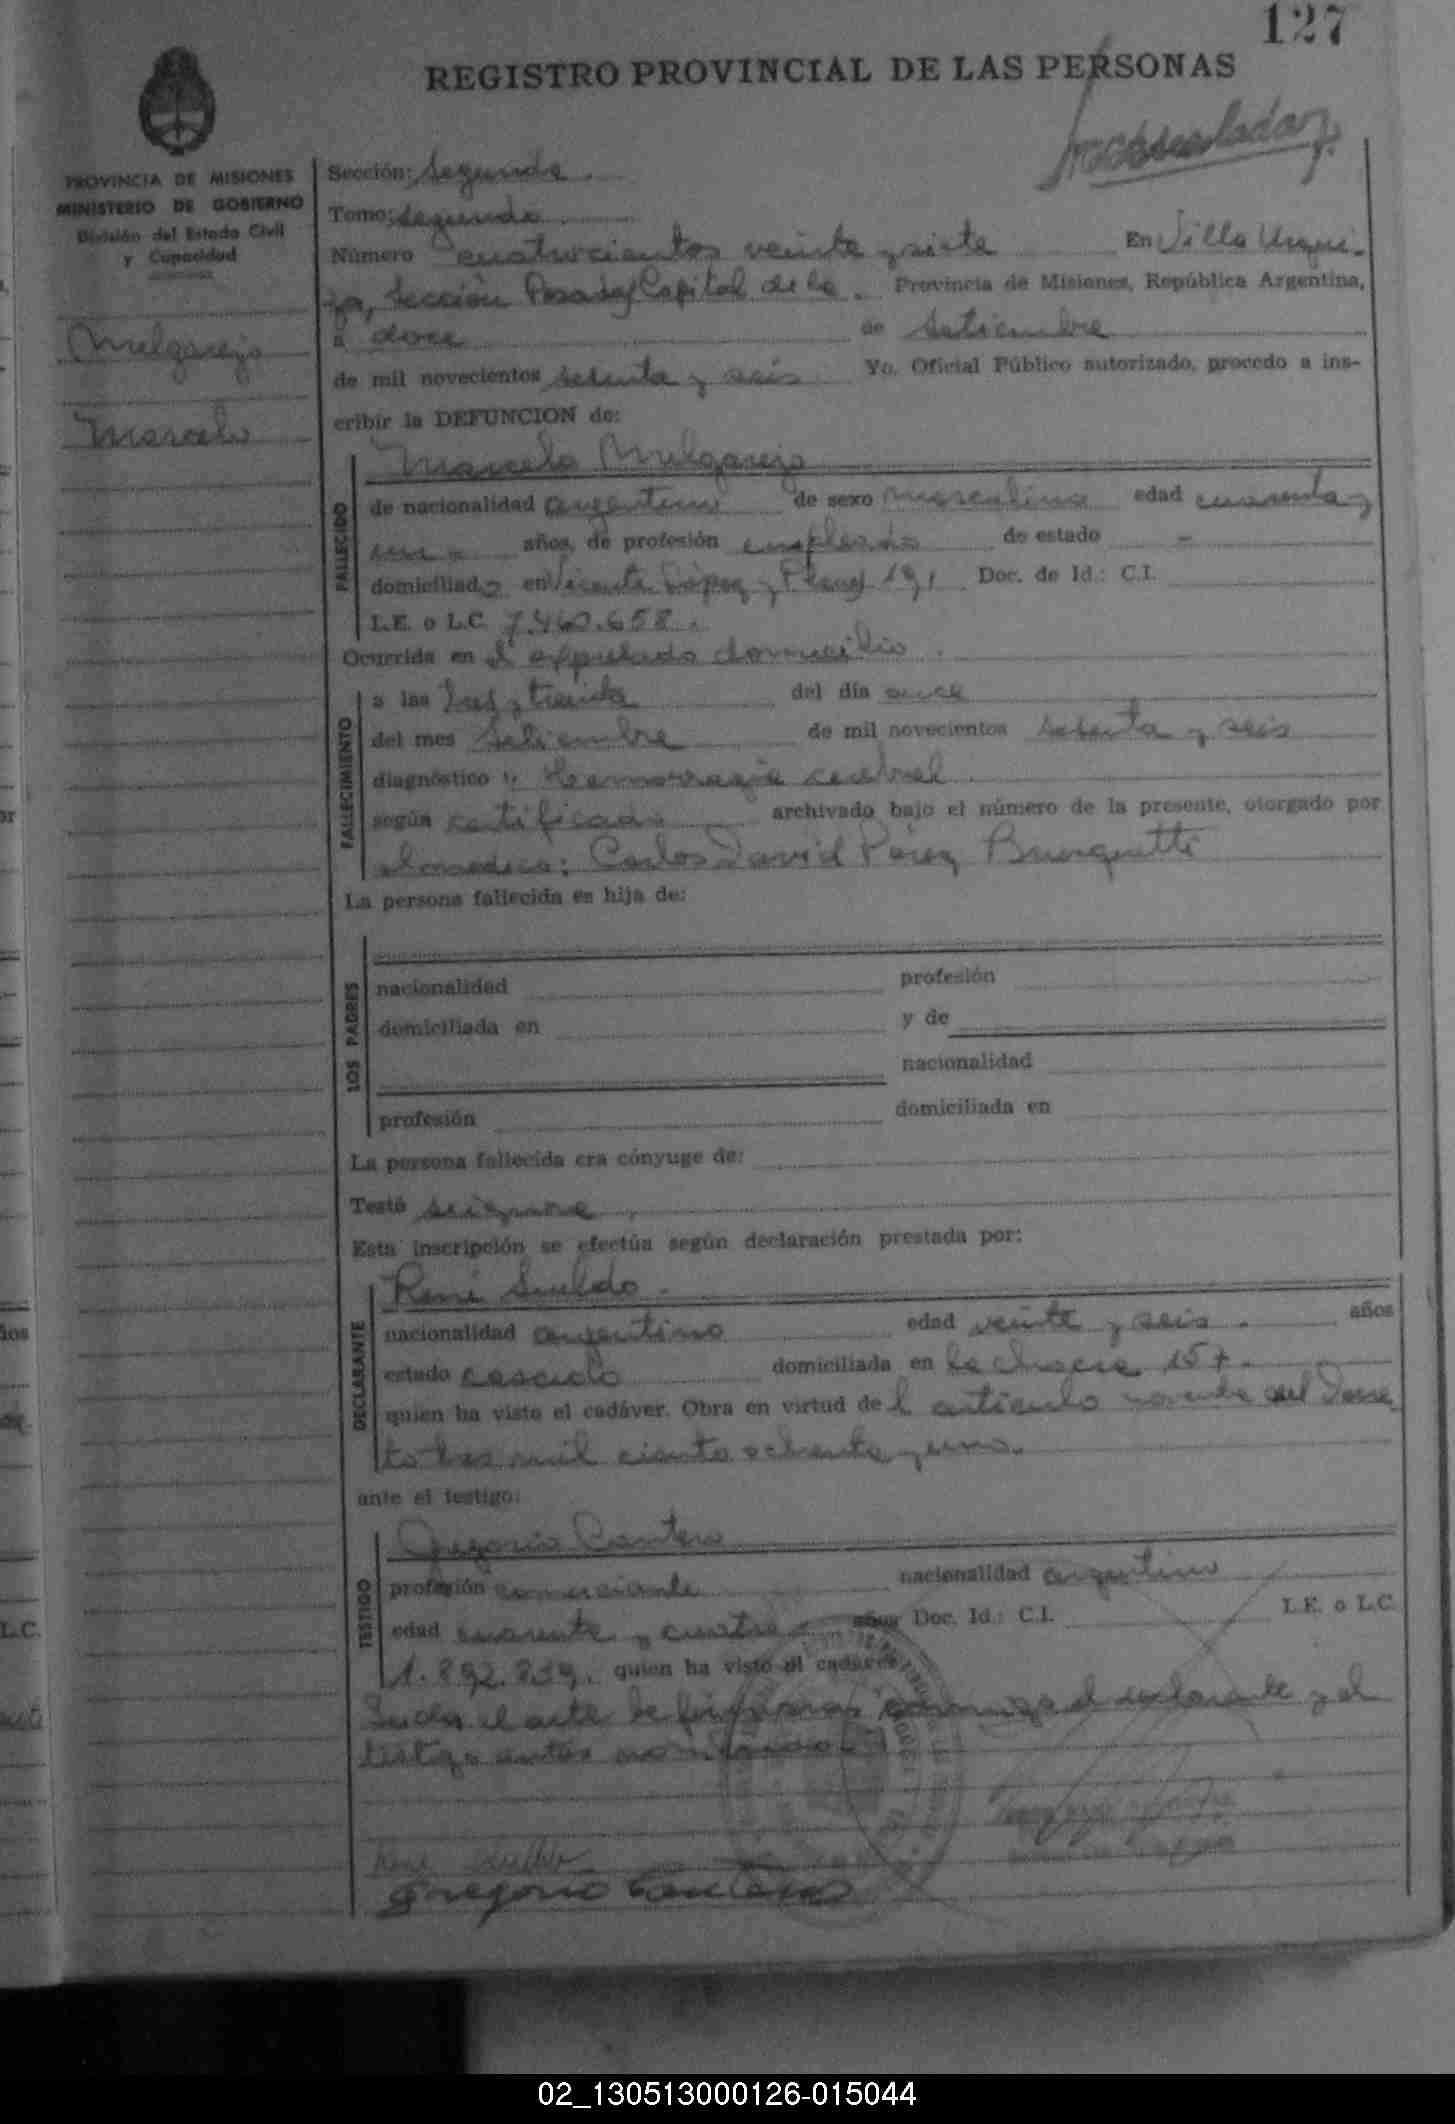 127
REGISTRO PROVINCIAL DE LAS PERSONAS
PROVINCIA DE MISIONES
MINISTERIO DE GOBIERNO
División del Estado Civil
y Capacidad
Melgarejo
Marcelo
Sección: Segunda.
Tomo: Segundo
Número cuatrocientos veinte y siete En Villa Urqui-
za, Sección Posadas Capital de la. Provincia de Misiones, República Argentina,
a doce de Setiembre
de mil novecientos setenta y seis Yo, Oficial Público autorizado, procedo a ins-
cribir la DEFUNCION de:
Marcelo Melgarejo
FALLECIDO
de nacionalidad argentino de sexo masculino edad cuarenta y
un - años, de profesión empleado de estado -
domiciliado en Vicente López y Planes 191 Doc. de Id.: C.I.
L.E. o L.C. 7.460.658.
Ocurrida en el expresado domicilio.
FALLECIMIENTO
a las tres y treinta del día once
del mes Setiembre de mil novecientos setenta y seis
diagnóstico: Hemorragia cerebral
según certificado archivado bajo el número de la presente, otorgado por
el medico: Carlos David Pérez
La persona fallecida es hija de:
LOS PADRES
nacionalidad profesión
domiciliada en y de
nacionalidad
profesión domiciliada en
La persona fallecida era cónyuge de:
Testó se ignora.
Esta inscripción se efectúa según declaración prestada por:
René Sueldo.
DECLARANTE
nacionalidad argentino edad veinte y seis. años
estado casado domiciliada en la chacra 157.
quien ha visto el cadáver. Obra en virtud del artículo noveno del Decre
to tres mil ciento ochenta y uno.
ante el testigo:
Gregorio Cantero
TESTIGO
profesión comerciante nacionalidad argentino
edad cuarenta y cuatro años Doc. Id.: C.I. L.E. o L.C.
1.892.839. quien ha visto el cadáver.
Leída el acta la firman conmigo el declarante y el
testigo antes nombrado
René Sueldo
Gregorio Cantero
02_130513000126-015044